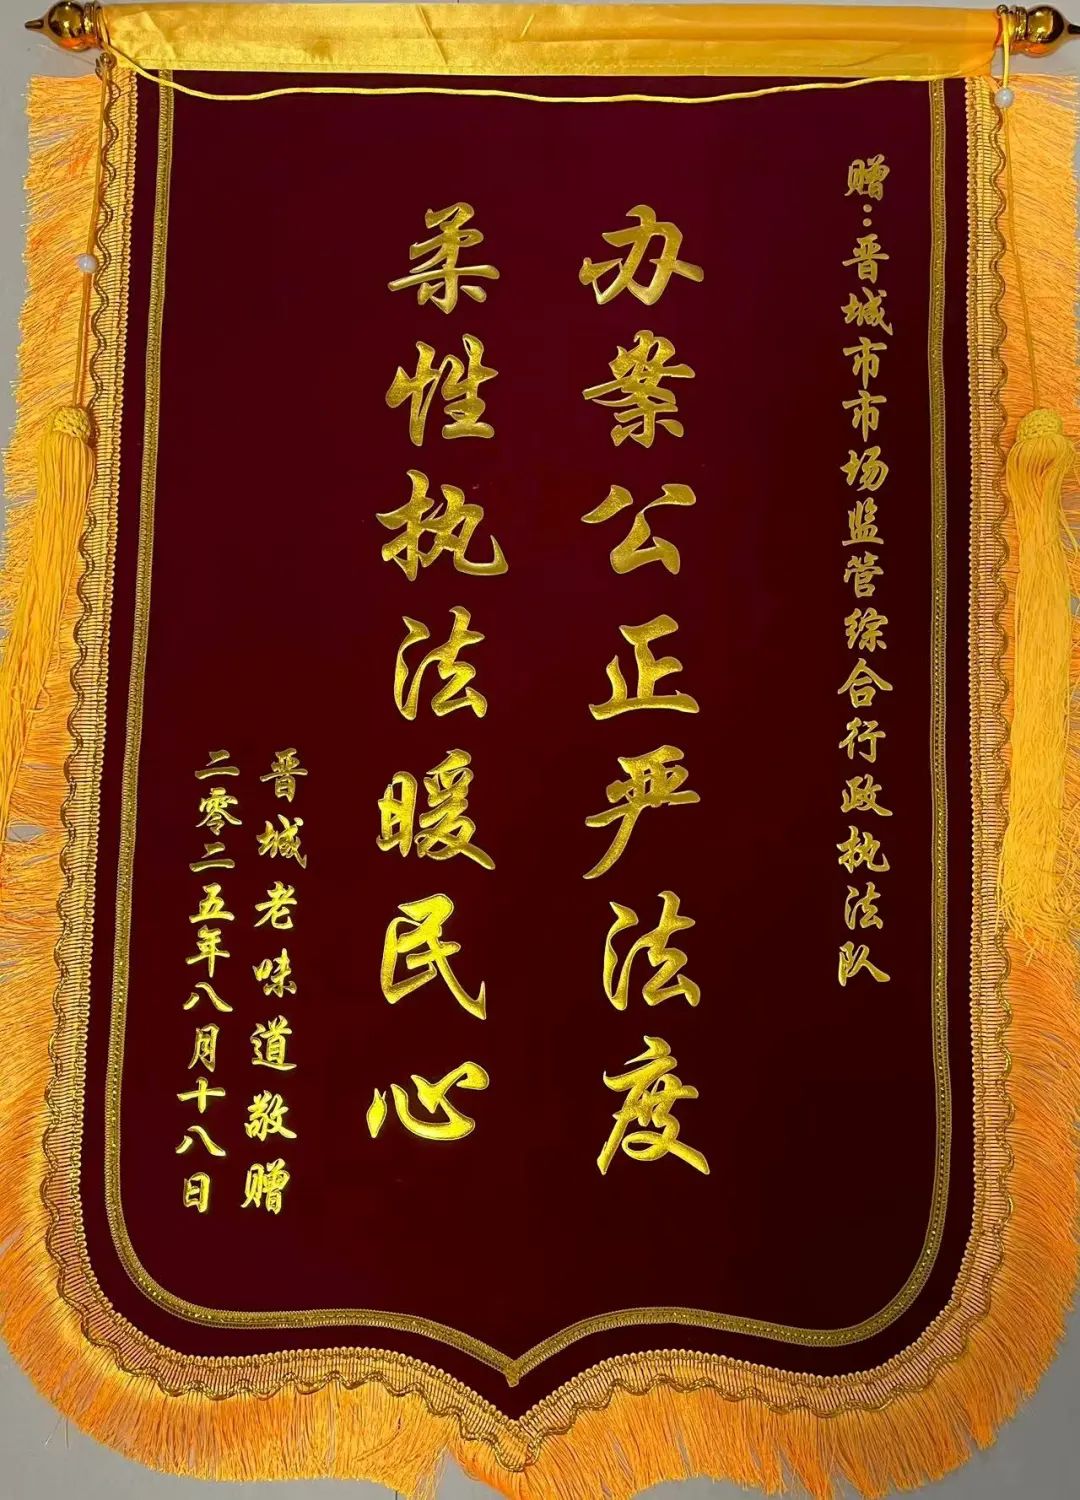 赠：晋城市市场监管综合行政执法队
办案公正严法度
柔性执法暖民心
晋城老味道敬赠
二零二五年八月十八日